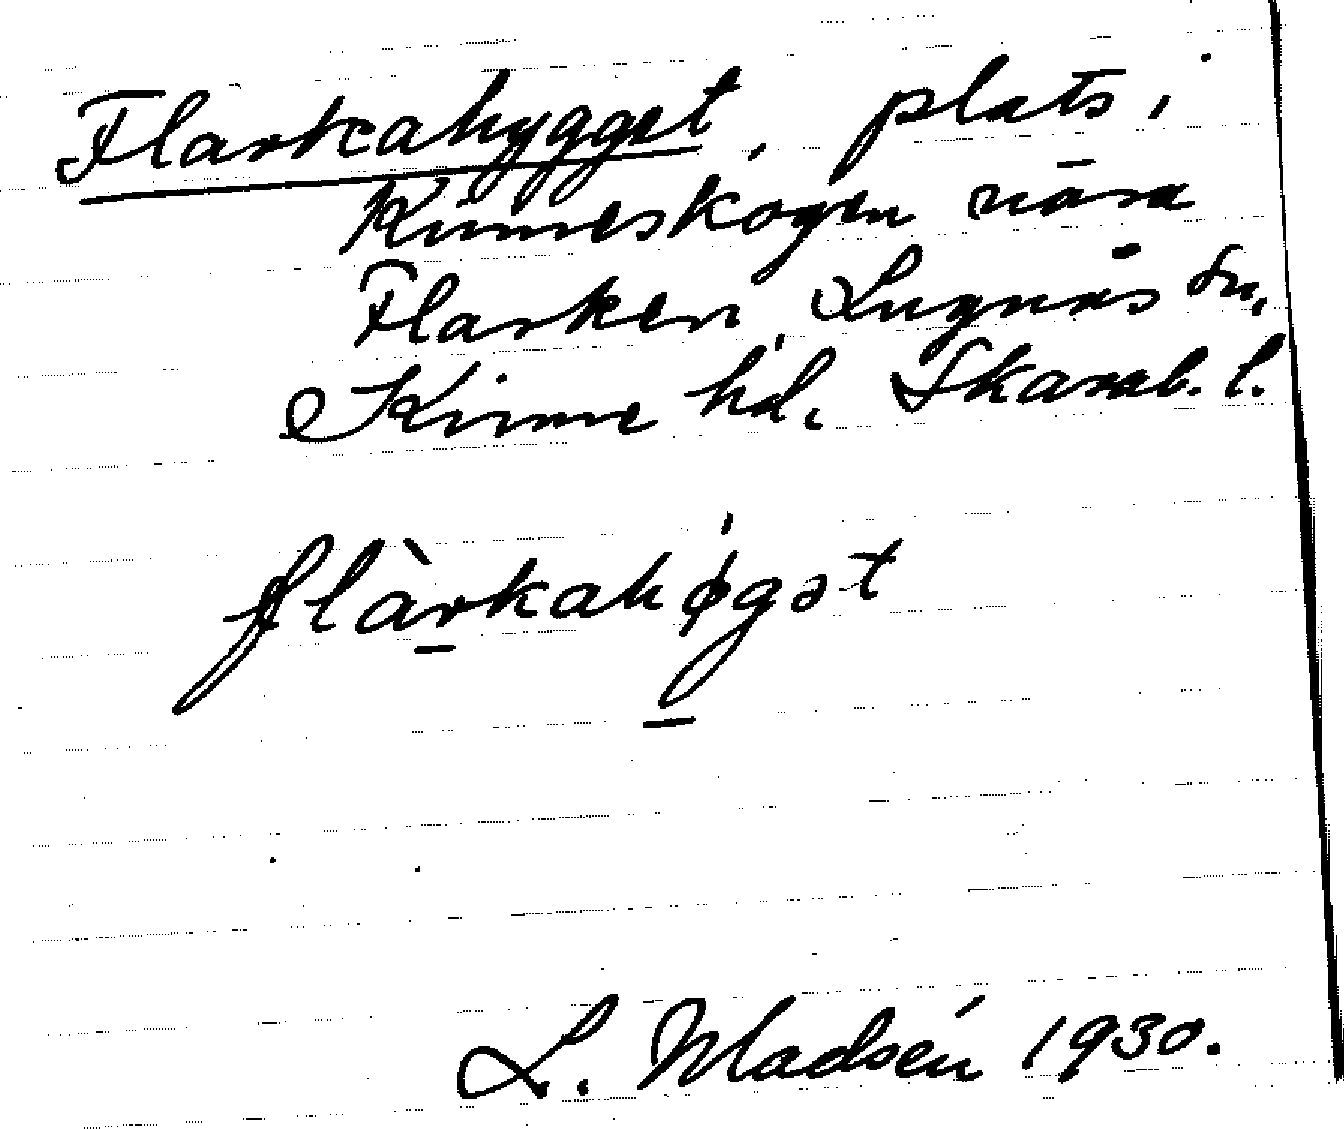 Flarkahygget, plats i
Kinneskogen nära
Flarken, Lugnås sn,
Kinne hd, Skarab. l.
flàrkahøgət
L. Madsén 1930.